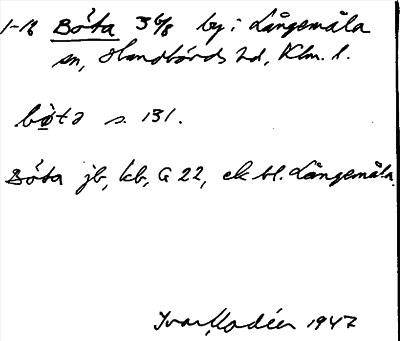 1-16 Böta 3 6/8 by i Långemåla
sn, Handbörds hd, Klm. l.
bø̀ta s. 131.
Böta jb, kb, G 22, ek bl. Långemåla.
Ivar Modéer 1947